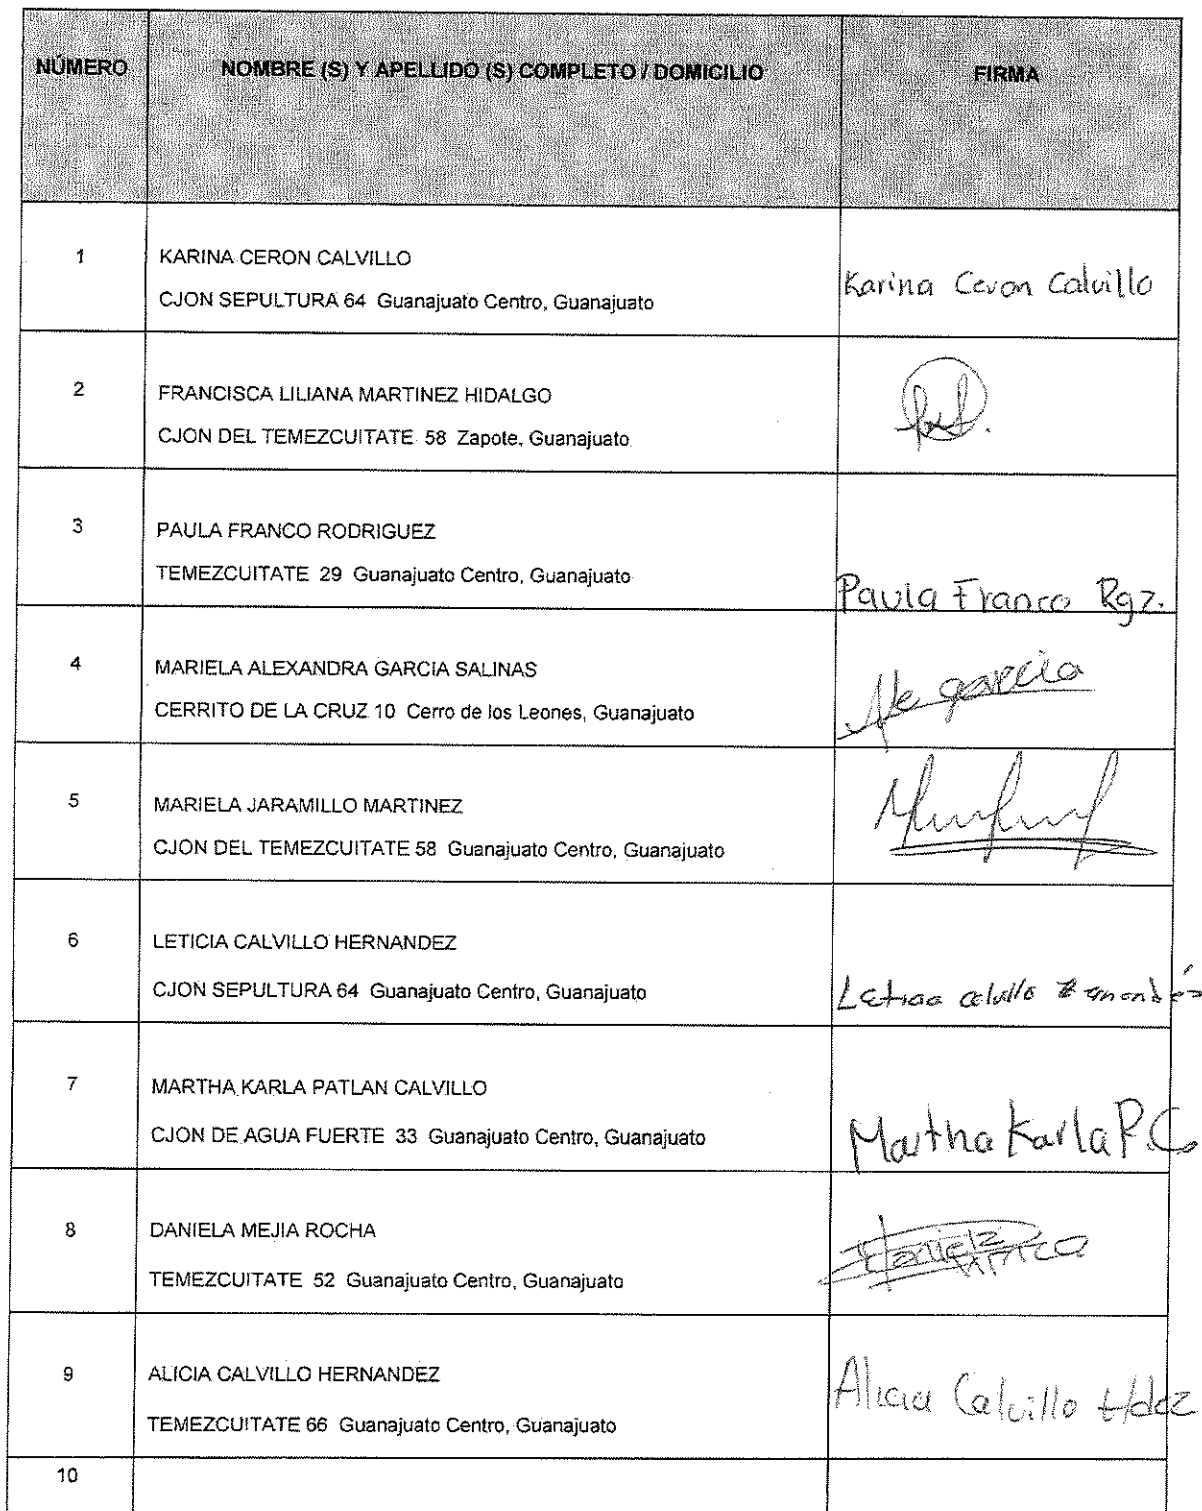 NÚMERO NOMBRE (S) Y APELLIDO (S) COMPLETO / DOMICILIO FIRMA
1 KARINA CERON CALVILLO
CJON SEPULTURA 64 Guanajuato Centro, Guanajuato
Karina Ceron Calvillo
2 FRANCISCA LILIANA MARTINEZ HIDALGO
CJON DEL TEMEZCUITATE 58 Zapote, Guanajuato
3 PAULA FRANCO RODRIGUEZ
TEMEZCUITATE 29 Guanajuato Centro, Guanajuato
Paula Franco Rgz.
4 MARIELA ALEXANDRA GARCIA SALINAS
CERRITO DE LA CRUZ 10 Cerro de los Leones, Guanajuato
garcia
5 MARIELA JARAMILLO MARTINEZ
CJON DEL TEMEZCUITATE 58 Guanajuato Centro, Guanajuato
6 LETICIA CALVILLO HERNANDEZ
CJON SEPULTURA 64 Guanajuato Centro, Guanajuato
7 MARTHA KARLA PATLAN CALVILLO
CJON DE AGUA FUERTE 33 Guanajuato Centro, Guanajuato
Martha Karla P.C.
8 DANIELA MEJIA ROCHA
TEMEZCUITATE 52 Guanajuato Centro, Guanajuato
9 ALICIA CALVILLO HERNANDEZ
TEMEZCUITATE 66 Guanajuato Centro, Guanajuato
Alicia Calvillo Hdez
10